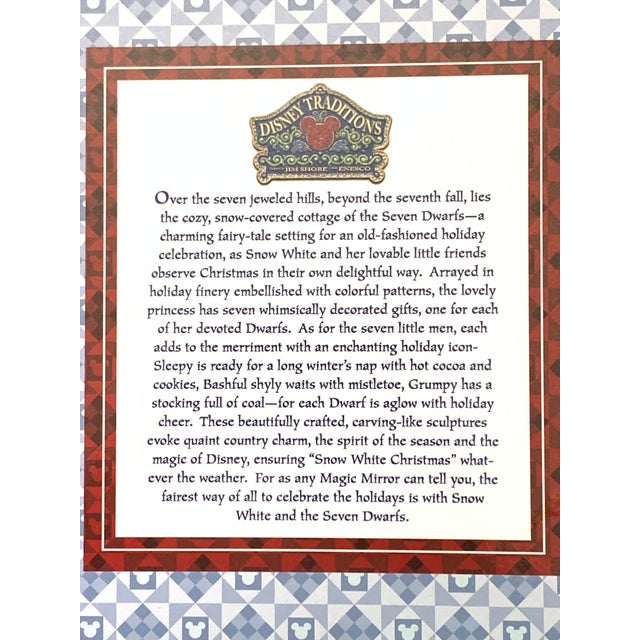 DISNEY TRADITIONS
JIM SHORE ENESCO
Over the seven jeweled hills, beyond the seventh fall, lies
the cozy, snow-covered cottage of the Seven Dwarfs—a
charming fairy-tale setting for an old-fashioned holiday
celebration, as Snow White and her lovable little friends
observe Christmas in their own delightful way. Arrayed in
holiday finery embellished with colorful patterns, the lovely
princess has seven whimsically decorated gifts, one for each
of her devoted Dwarfs. As for the seven little men, each
adds to the merriment with an enchanting holiday icon-
Sleepy is ready for a long winter's nap with hot cocoa and
cookies, Bashful shyly waits with mistletoe, Grumpy has a
stocking full of coal—for each Dwarf is aglow with holiday
cheer. These beautifully crafted, carving-like sculptures
evoke quaint country charm, the spirit of the season and the
magic of Disney, ensuring "Snow White Christmas" what-
ever the weather. For as any Magic Mirror can tell you, the
fairest way of all to celebrate the holidays is with Snow
White and the Seven Dwarfs.